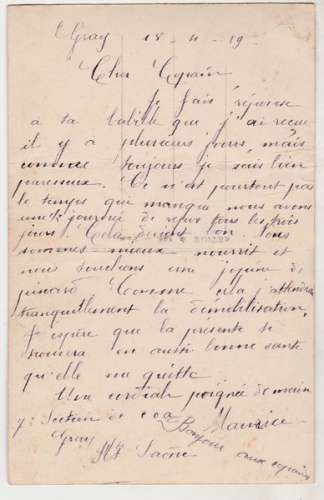 Gray 18-4-19
Cher Copain
Je fais réponse
à ta lettre que j'ai recue
il y a plusieurs jours, mais
comme toujours je suis bien
paresseux. Ce n'est pourtant pas
le temps qui manque nous avons
une journée de repos tous les trois
jours. Cela devient bon. Nous
sommes mieux nourrit et
nous touchons une
pinard Comme cela j'attendrai
tranquillement la démobilisation.
J'espère que la présente te
trouvera en aussi bonne santé
qu'elle me quitte
Une cordiale poignée de main
Maurice
7e Section de c o a
Gray
Hte Saône
Bonjour aux copains